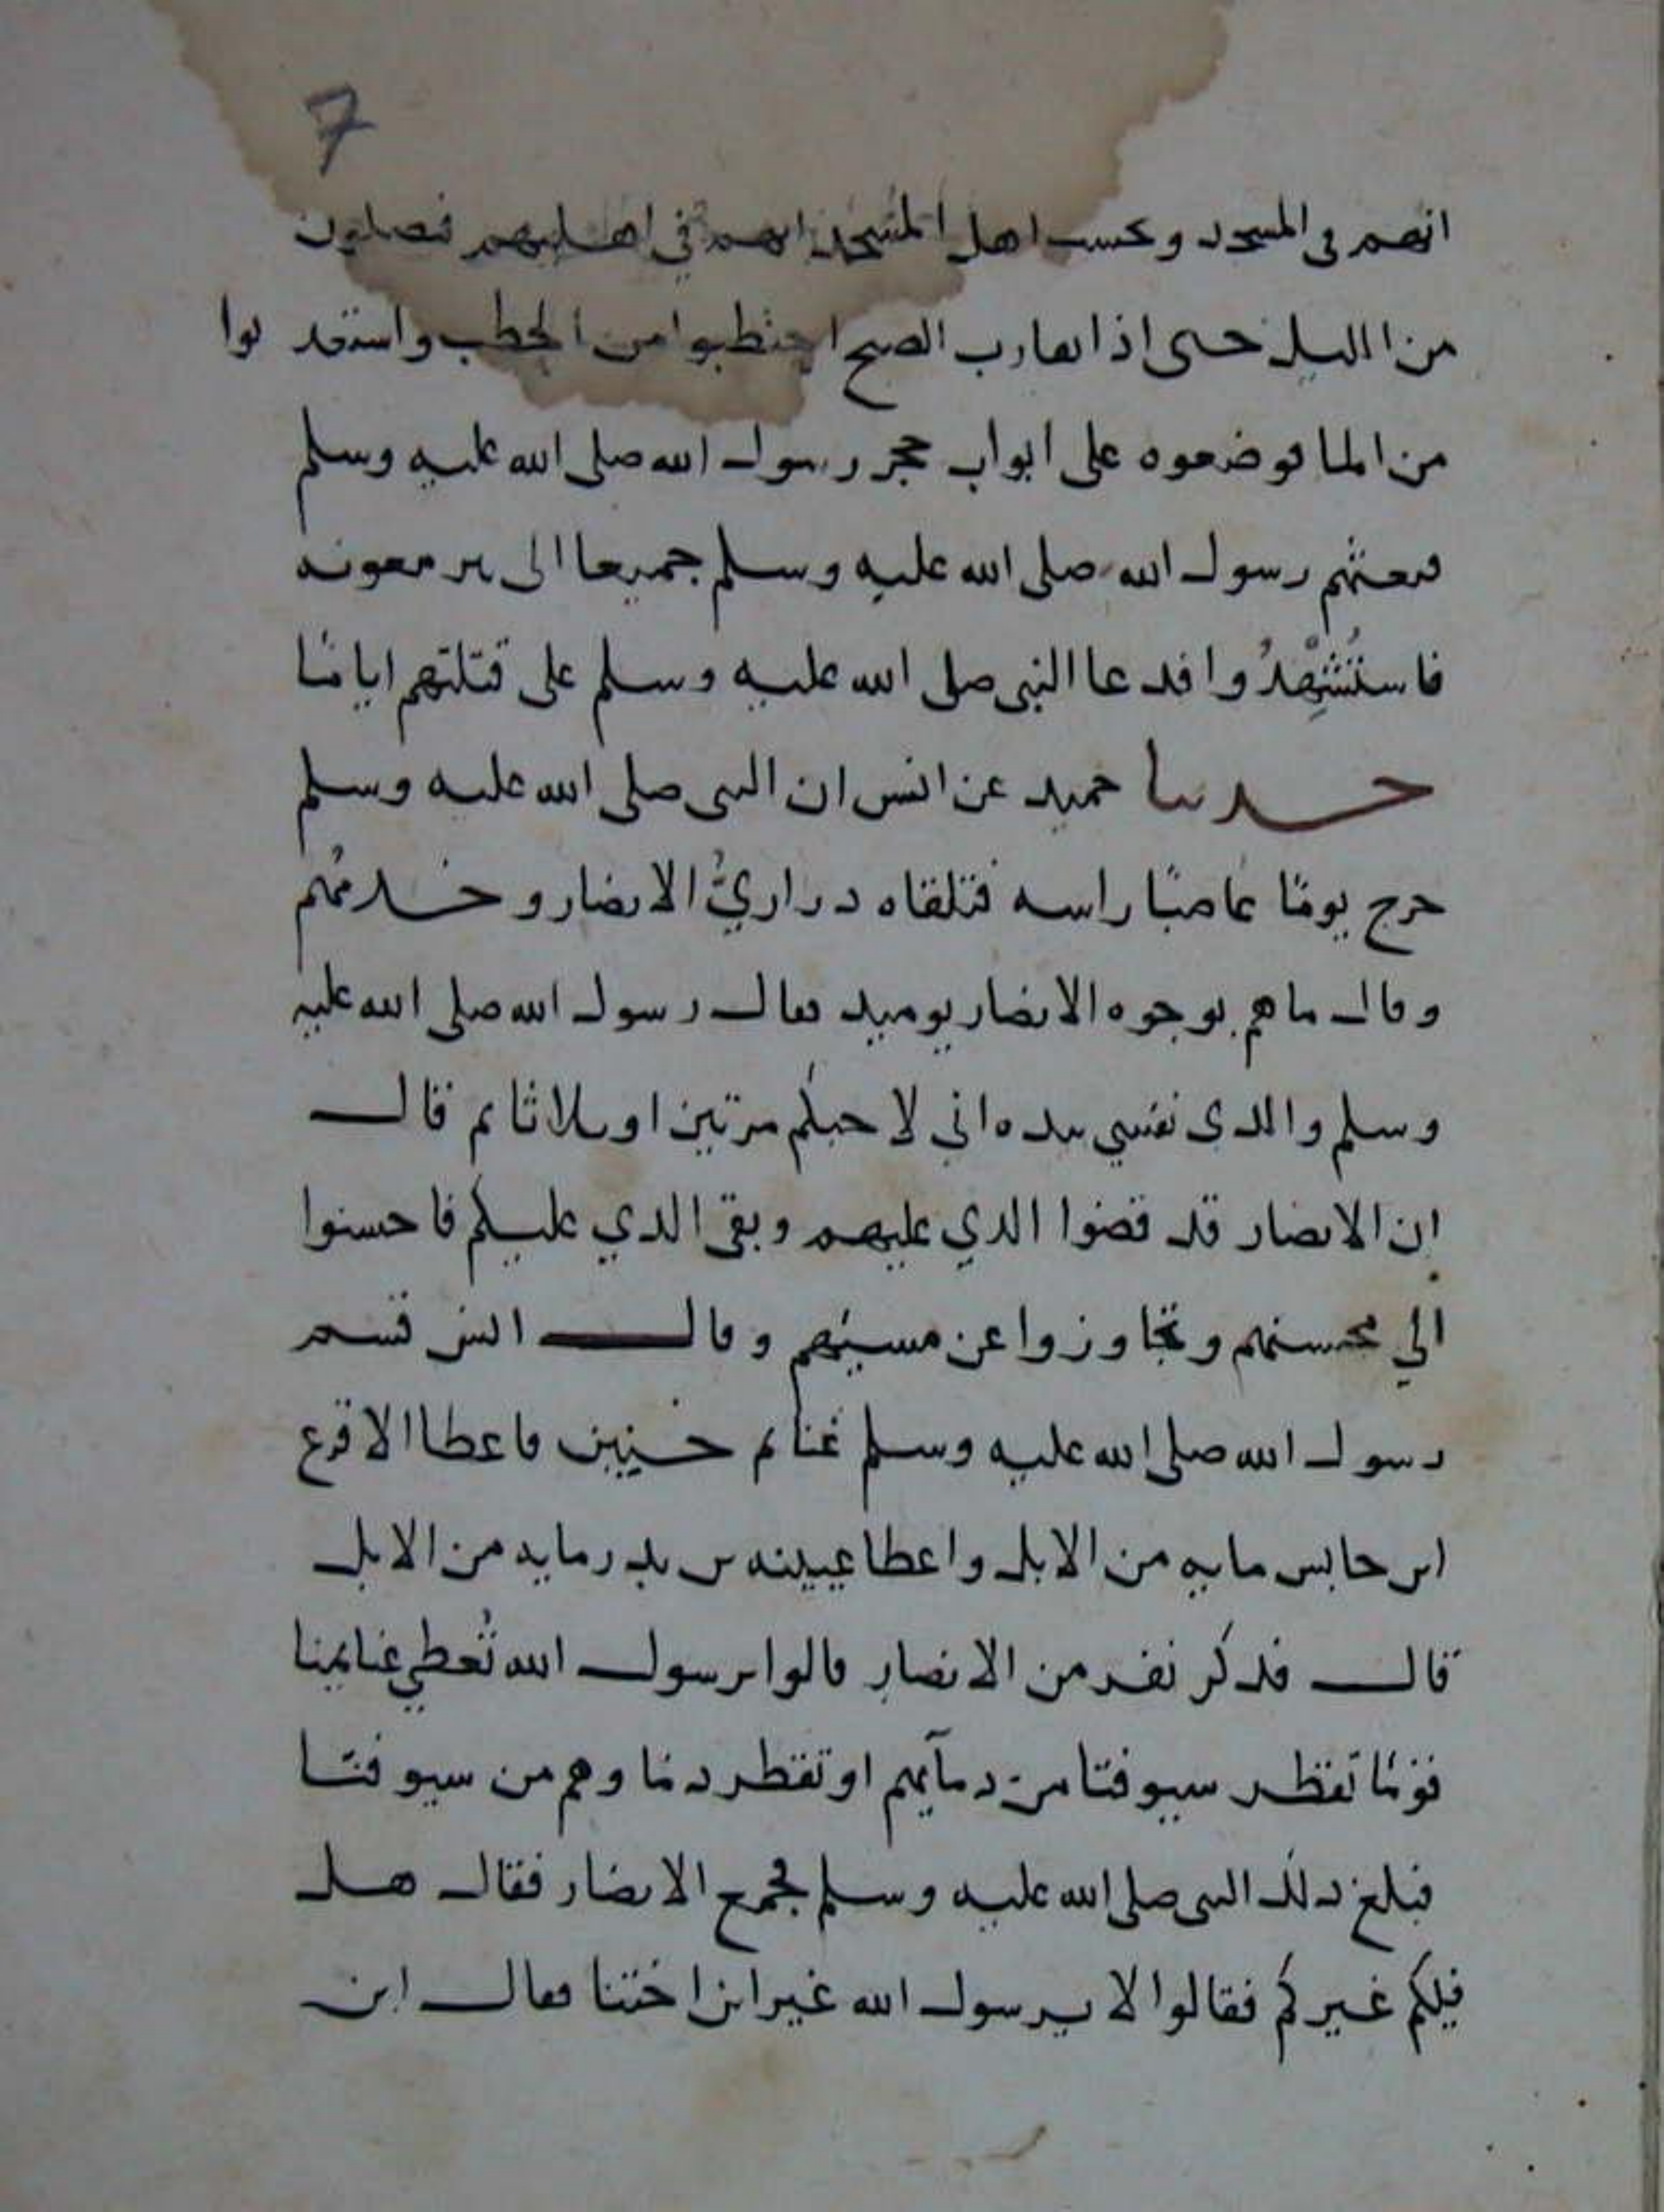 7
انهم في المسجد ويحسب اهل المسجد انهم في اهليهم فيصلون
من الليل حتى اذا تقارب الصبح احتطبوا من الحطب واستعذبوا
من الما فوضعوه على ابواب حجر رسول الله صلى الله عليه وسلم
فبعثهم رسول الله صلى الله عليه وسلم جميعا الى بير معونه
فاستُشْهِدُوا فدعا النبي صلى الله عليه وسلم على قتلتهم ايامًا
حدثنا حميد عن انس ان النبي صلى الله عليه وسلم
خرج يومًا عاصبًا راسه فتلقاه دراريُّ الانصار وخدمُهم
وقال ما هم بوجوه الانصار يوميد فقال رسول الله صلى الله عليه
وسلم والدي نفسي بيده اني لاحبكم مرتين او ثلاثا ثم قال
ان الانصار قد قضوا الدي عليهم وبقي الدي عليكم فاحسنوا
الي محسنهم وتجاوزوا عن مسيئهم وقال انس قسم
رسول الله صلى الله عليه وسلم غنايم حنين فاعطا الاقرع
ابن حابس مايه من الابل واعطا عيينه بن بدر مايه من الابل
قال فدكر نفر من الانصار قالوا يرسول الله تُعطي غنايمنا
قومًا تقطر سيوفنا من دمآيهم او تقطر دماوهم من سيوفنا
فبلغ دلك النبي صلى الله عليه وسلم فجمع الانصار فقال هل
فيكم غيركم فقالوا لا يرسول الله غير ابن اختنا فقال ابن